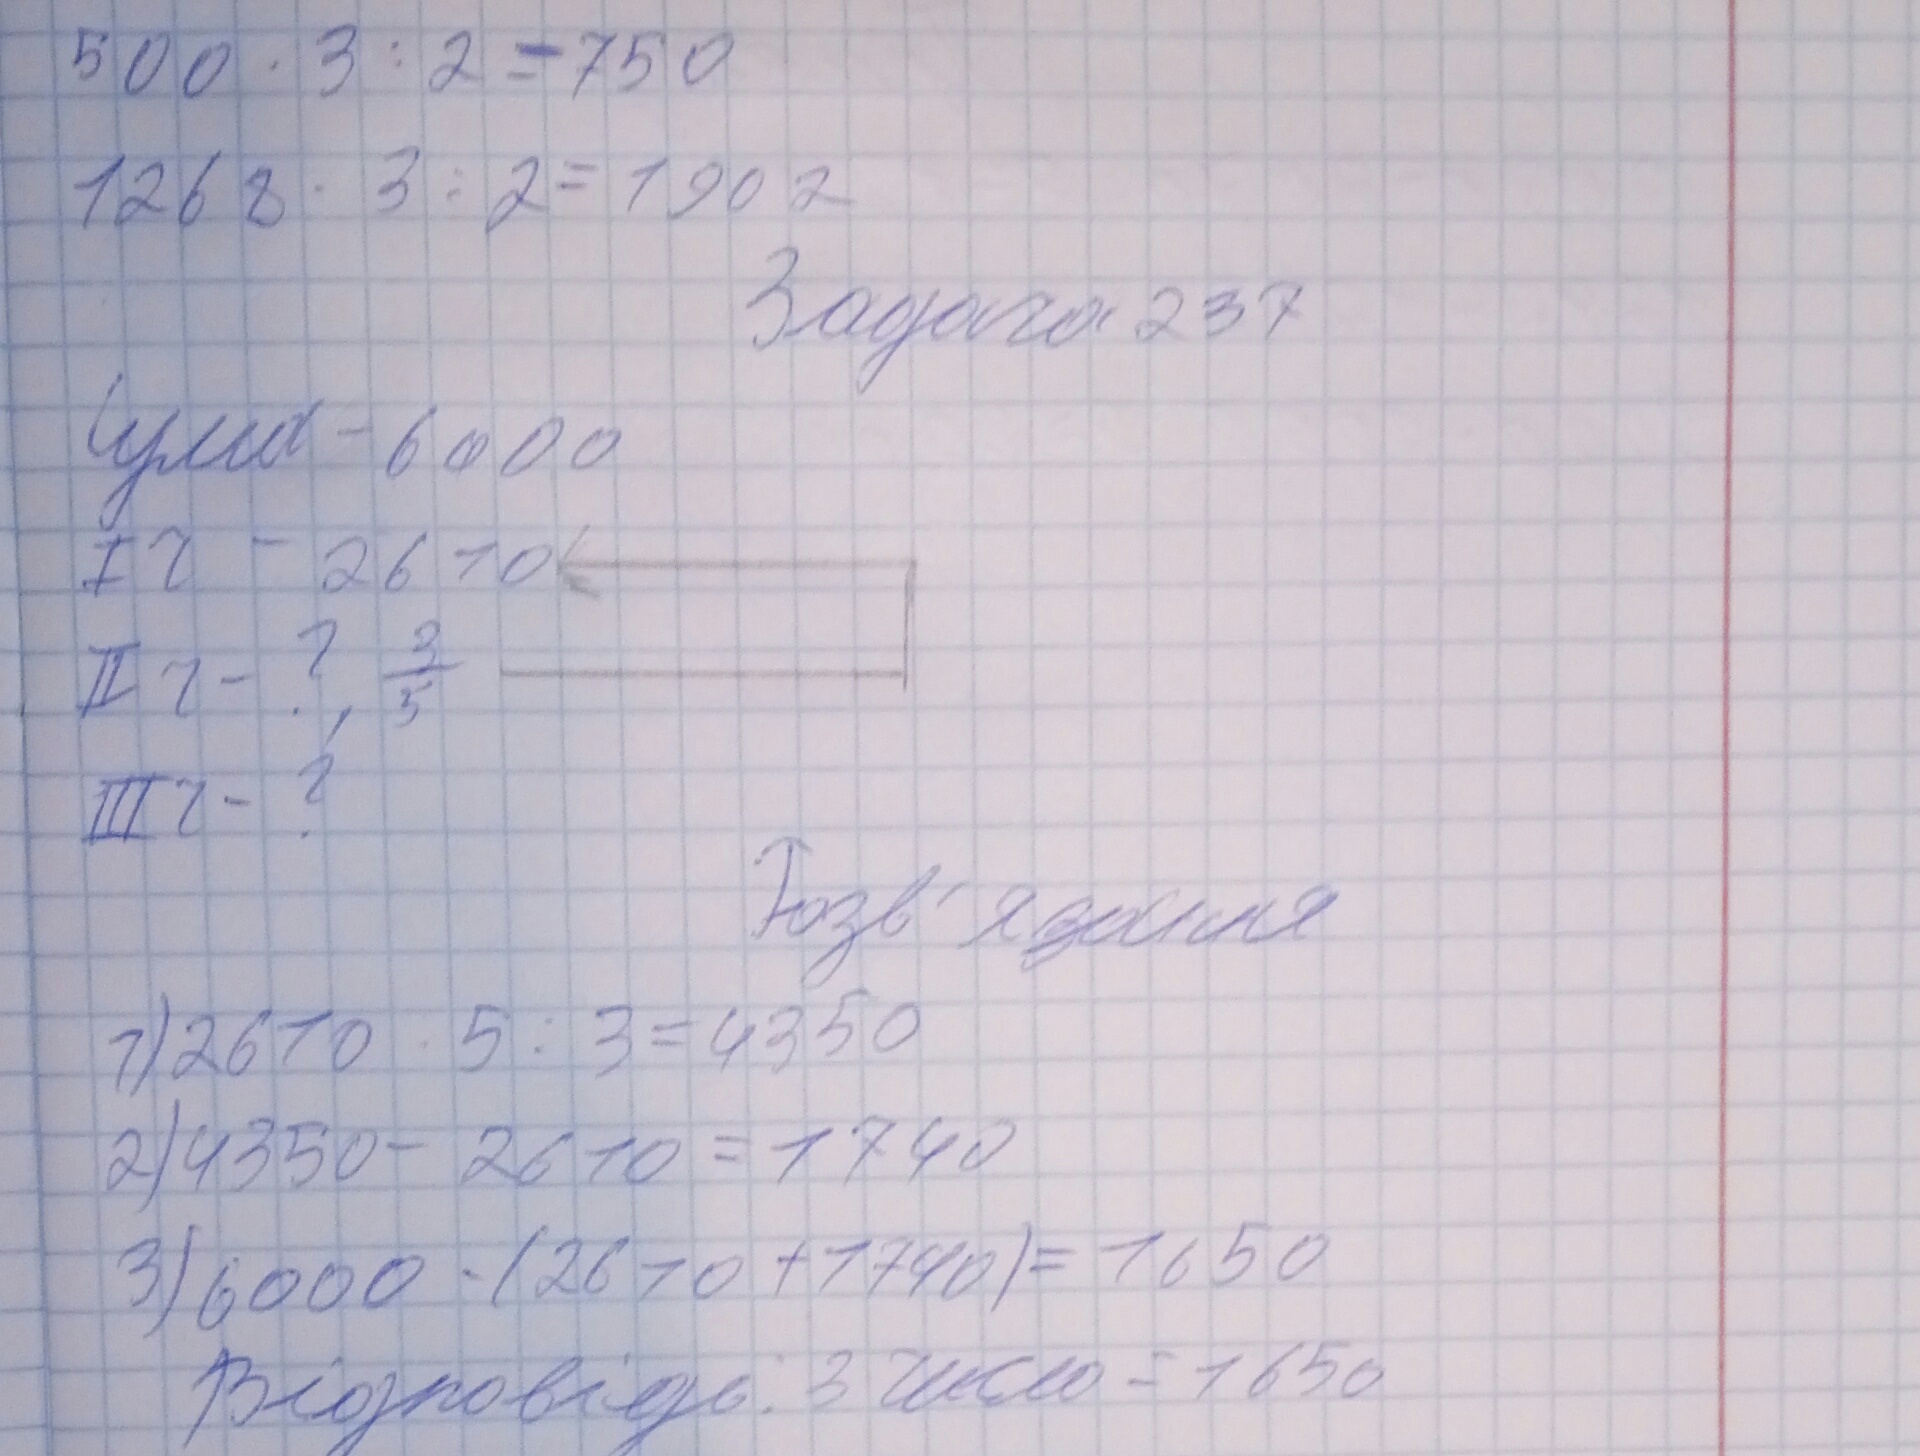 500 · 3 : 2 = 750
1268 · 3 : 2 = 1902
Задача 237
Сума - 6000
I ч - 2610
II ч - ?, 3/5
III ч - ?
Розв'язання
1) 2610 · 5 : 3 = 4350
2) 4350 - 2610 = 1740
3) 6000 - (2610 + 1740) = 1650
Відповідь: 3 число = 1650